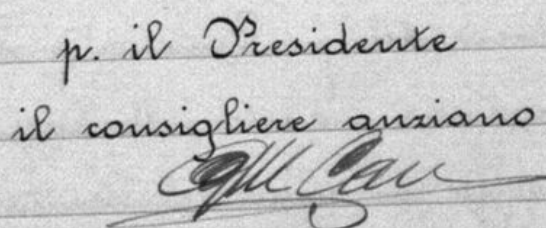 p. il Presidente
il consigliere anziano